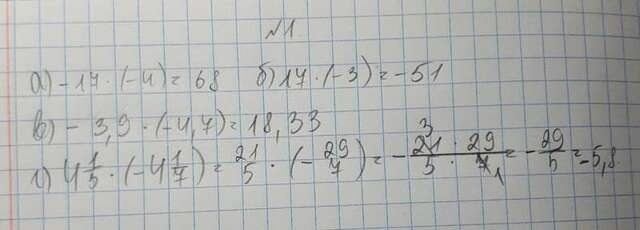 №1
а) -17·(-4)=68 б) 17·(-3)=-51
в) -3,9·(-4,7)=18,33
г) 4 1/5·(-4 1/7)=21/5·(-29/7)=-(21·29)/(5·7)=-29/5=-5,8